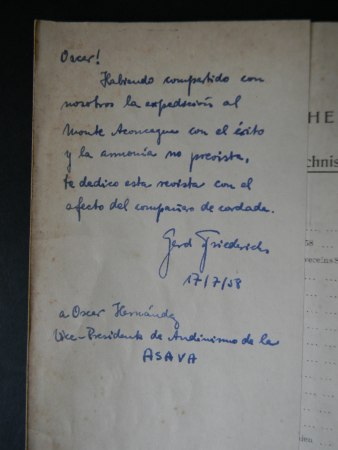 Oscar!
Habiendo compartido con
nosotros la expedición al
Monte Aconcagua con el éxito
y la armonía no prevista,
te dedico esta revista con el
afecto del compañero de cordada.
Gerd Friederichs
17/7/58
a Oscar Hernández
Vice-Presidente de Andinismo de la
ASAVA
HE
chnis
58
ereins
den